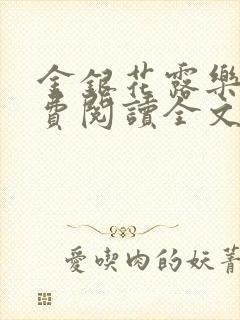 金銀花露樂
費閱讀全文
愛喫肉的妖蒈